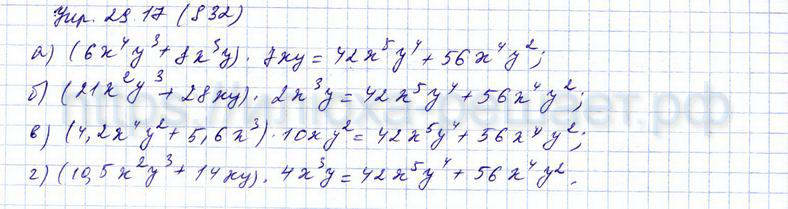 Упр. 29.17 (832)
а) (6x⁴y³ + 8x³y) · 7xy = 42x⁵y⁴ + 56x⁴y²;
б) (21x²y³ + 28xy) · 2x³y = 42x⁵y⁴ + 56x⁴y²;
в) (4,2x⁴y² + 5,6x³) · 10xy² = 42x⁵y⁴ + 56x⁴y²;
г) (10,5x²y³ + 14xy) · 4x³y = 42x⁵y⁴ + 56x⁴y².